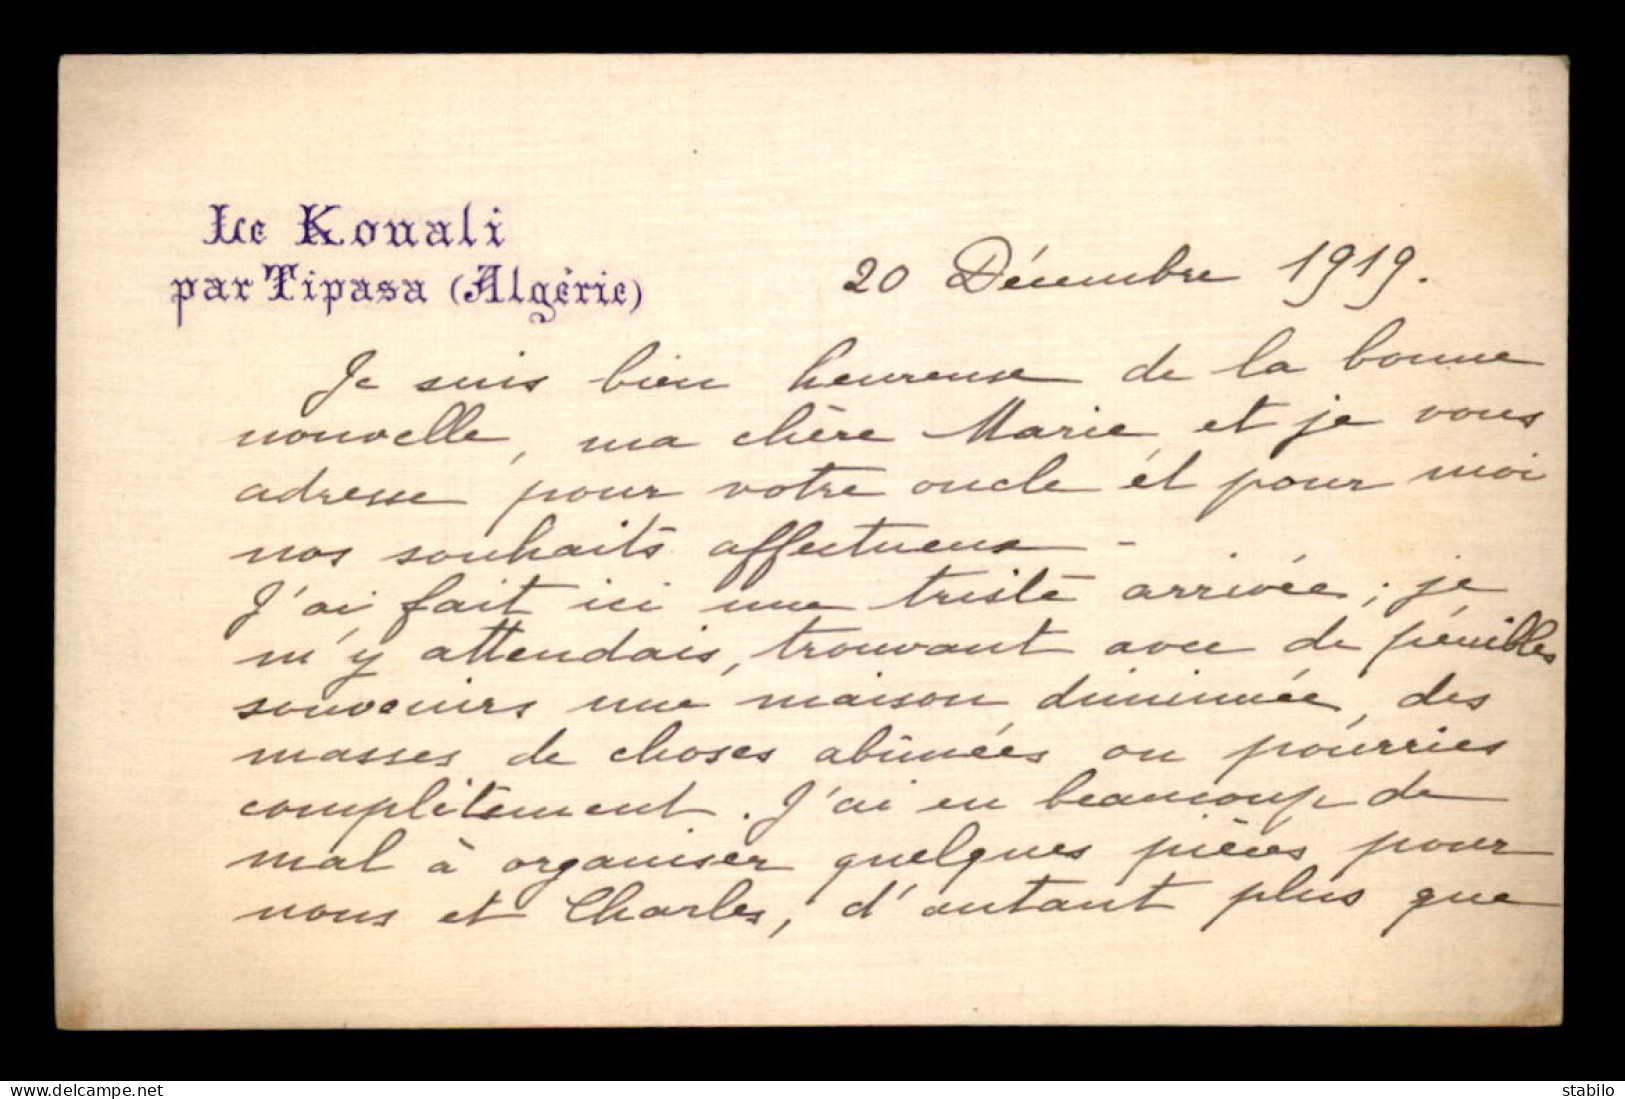 Le Kouali
par Tipasa (Algérie)
20 Décembre 1919.
Je suis bien heureuse de la bonne
nouvelle, ma chère Marie, et je vous
adresse pour votre oncle et pour moi
nos souhaits affectueux -
J'ai fait ici une triste arrivée ; je
m'y attendais, trouvant avec de pénibles
souvenirs une maison diminuée, des
masses de choses abîmées ou pourries
complètement. J'ai eu beaucoup de
mal à organiser quelques pièces pour
nous et Charles, d'autant plus que
delcampe.net
stabilo